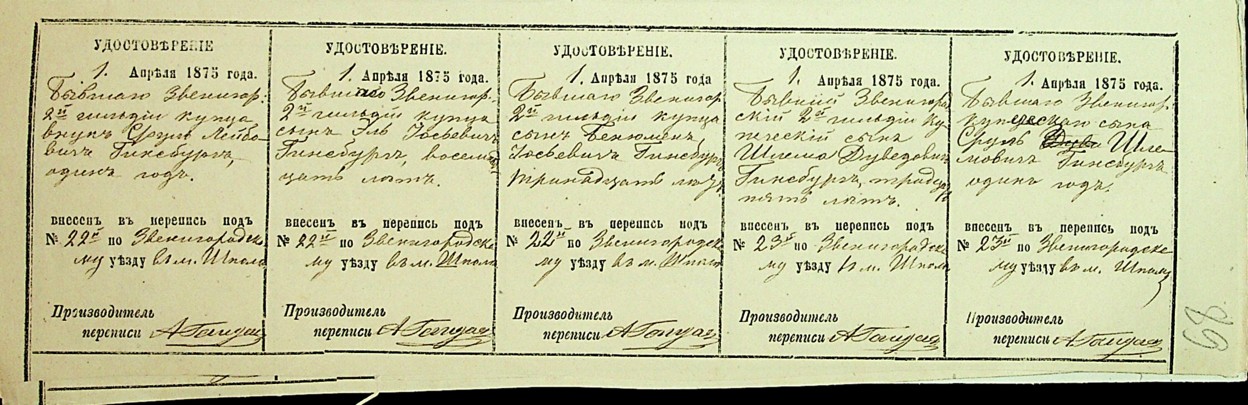 УДОСТОВѢРЕНІЕ
1. Апрѣля 1875 года.
Бывшаго Звенигор.
2й гильдіи купца
внукъ Сруль Лейбо-
вичъ Гинсбургъ,
одинъ годъ.
внесенъ въ перепись подъ
№ 22й по Звенигородско-
му уѣзду въ м. Шпола
Производитель
переписи
УДОСТОВѢРЕНІЕ.
1. Апрѣля 1875 года.
Бывшаго Звенигор.
2й гильдіи купца
сынъ Эль Іосьевичъ
Гинсбургъ, восемнад-
цать лѣтъ.
внесенъ въ перепись подъ
№ 22й по Звенигородско-
му уѣзду въ м. Шпола
Производитель
переписи
УДОСТОВѢРЕНІЕ.
1. Апрѣля 1875 года
Бывшаго Звенигор
2й гильдіи купца
сынъ Бенюменъ
Іосьевичъ Гинсбургъ
тринадцать лѣтъ.
внесенъ въ перепись подъ
№ 22й по Звенигородско-
му уѣзду въ м. Шпола
Производитель
переписи
УДОСТОВѢРЕНІЕ.
1. Апрѣля 1875 года.
Бывшій Звенигород-
скій 2й гильдіи ку-
печескій сынъ
Шлема Дуведовичъ
Гинсбургъ,
пять лѣтъ.
внесенъ въ перепись подъ
№ 23й по Звенигородско-
му уѣзду въ м. Шпола
Производитель
переписи
УДОСТОВѢРЕНІЕ.
1. Апрѣля 1875 года.
Бывшаго Звенигор.
купеческаго сына
Сруль Шле-
мовичъ Гинсбургъ
одинъ годъ.
внесенъ въ перепись подъ
№ 23й по Звенигородско-
му уѣзду въ м. Шпола
Производитель
переписи
68